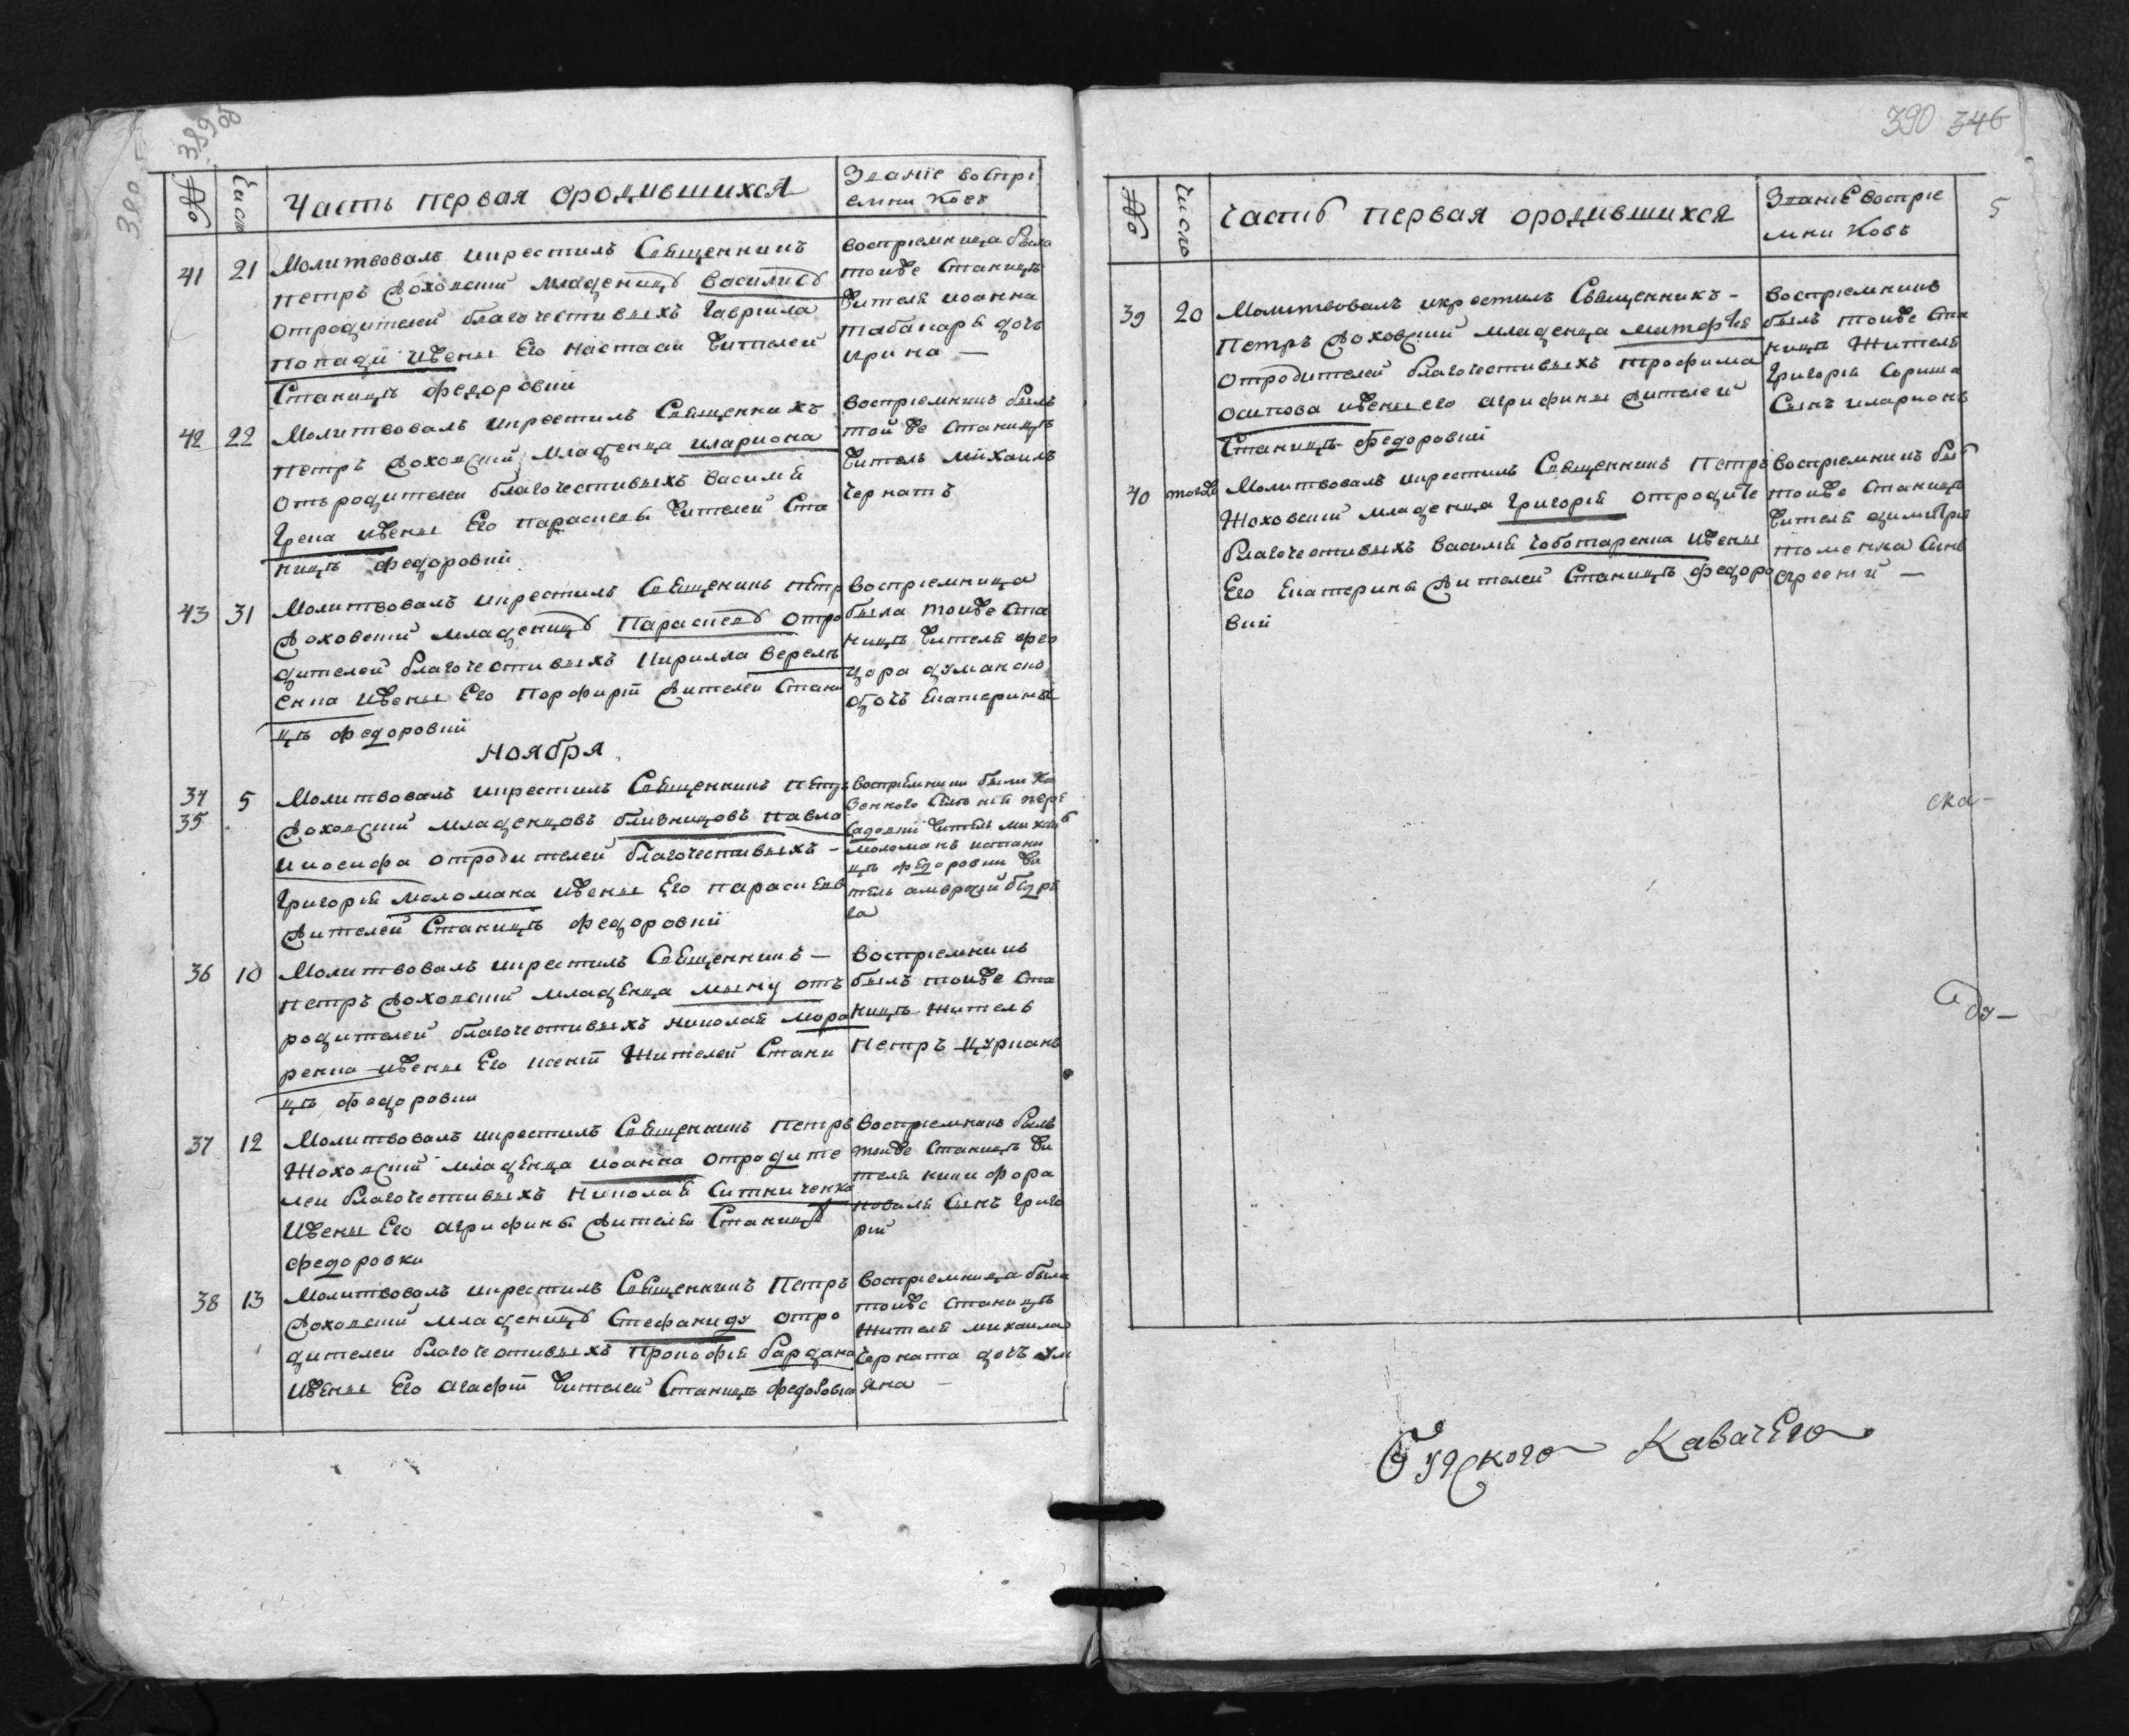 380
389
об
№
Число
Часть первая ородившихся
Званіе востри
емни ковъ
41 21 Молитвовалъ икрестилъ Священникъ
Петръ Жоховскій младеницѣ Василисѣ
отродителей благочестивыхъ Гаврила
Попадіи ижены Его Настасіи жителей
Станицѣ Федоровкій
востріемница была
тоиже Станицѣ
жителя иоанна
табанаря дочь
ирина —
42 22 Молитвовалъ икрестилъ Священникъ
Петръ Жоховскій младенца илариона
отъродителеи благочестивыхъ василия
Грека ижены Его параскевы жителей Ста
ницѣ Федоровкій
востріемникъ былъ
той же станицѣ
житель михаилъ
Чернатъ
43 31 Молитвовалъ икрестилъ Священикъ пётр
Жоховскій младеницѣ Параскевѣ отро
дителей благочестивыхъ Кирилла верем
енка ижены Его Порфиріи жителей Стани
цѣ Федоровкій
востріемница
была тоиже Ста
ницѣ жителя фео
дора думанско
дочъ Екатерина
Ноября
34
35
5 Молитвовалъ икрестилъ Священникъ пётръ
Жоховскій младенцовъ близницовъ павла
ииосифа отродителей благочестивыхъ —
Григорія моломана ижены Его параскевы
жителей Станицѣ Федоровкій
востріемники были Ка
зенного
житель михаилъ
моломанъ истани
цѣ федоровки жи
тель амвросій
36 10 Молитвовалъ икрестилъ Священникъ —
Петръ Жоховскій младенца мину отъ
родителей благочестивыхъ николая мора
ренка ижены Его Жителей Стани
цѣ Федоровки
востріемникъ
былъ тоиже Ста
ницѣ житель
Петръ цурканъ
37 12 Молитвовалъ икрестилъ Священникъ Петръ
Жоховскій младенца иоанна отродите
леи благочестивыхъ николая Ситниченка
ижены Его агрифины жителя Станицѣ
федоровки
востріемникъ былъ
тоиже Станицѣ жи
теля никифора
коваля Сынъ Григо
рій
38 13 Молитвовалъ икрестилъ Священникъ Петръ
Жоховскій младеницѣ Стефаниду отро
дителеи благочестивыхъ Прокофія бардана
ижены Его агафіи жителей Станицѣ федоровки
востріемница была
тоиже станицѣ
жителя михаила
Черната дочъ ули
яна —
390 346
5
№
Число
Частъ первая ородившихся
ЗваніЕ востріе
мни ковъ
39 20 Молитвовалъ икрестилъ Священникъ —
Петръ Жоховскій младенца матфѣя
отродителей благочестивыхъ трофима
осипова ижены его агрифины жителей
Станицѣ Федоровкій
востріемникъ
былъ тоиже Ста
ницѣ Жителя
Григорія Сориша
Сынъ иларионъ
40 тогоже Молитвовалъ икрестилъ Священникъ Петръ
Жоховскій младенца Григорія отродите
благочестивыхъ василя чоботаренка ижены
Его Екатерины жителей Станицѣ Федоро
вкій
востріемникъ был
тоиже станицѣ
жителя димитрія
томенка Синъ
—
ска—
ду—